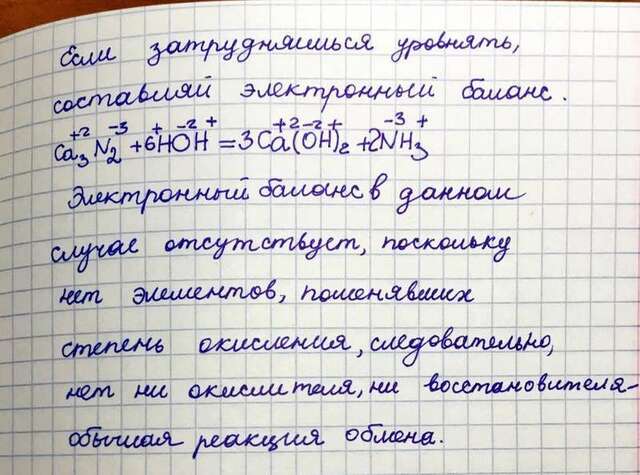 Если затрудняешься уровнять,
составляй электронный баланс.
Ca₃⁺²N₂⁻³ + 6H⁺O⁻²H⁺ = 3Ca⁺²(O⁻²H⁺)₂ + 2N⁻³H₃⁺
Электронный баланс в данном
случае отсутствует, поскольку
нет элементов, поменявших
степень окисления, следовательно,
нет ни окислителя, ни восстановителя-
обычная реакция обмена.